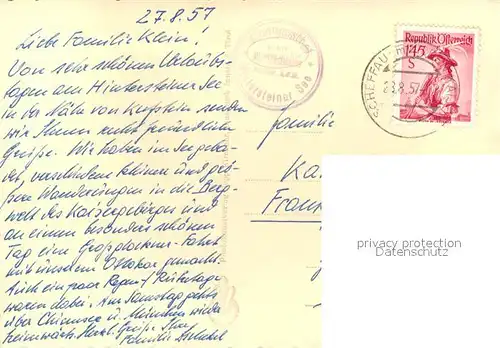 27.8.57
Liebe Familie Klein!
Von sehr schönen Urlaubs-
tagen am Hintersteiner See
in der Nähe von Kufstein senden
wir Ihnen recht freundliche
Grüße. Wir haben im Seegebiet
verschiedene kleinere und grö-
ßere Wanderungen in die Berg-
welt des Kaisergebirges und
an einem besonders schönen
Tag eine Großglockner-Fahrt
mit unserem gemacht.
Auch ein paar Regen- Ruhetage
waren dabei. Am Samstag geht's
über Chiemsee u. München wieder
heimwärts. Herzl. Grüße Ihre
Familie
Hintersteiner See
Republik Österreich
1.45
S
SCHEFFAU
8.57
Familie
Ka
Fran
privacy protection
Datenschutz